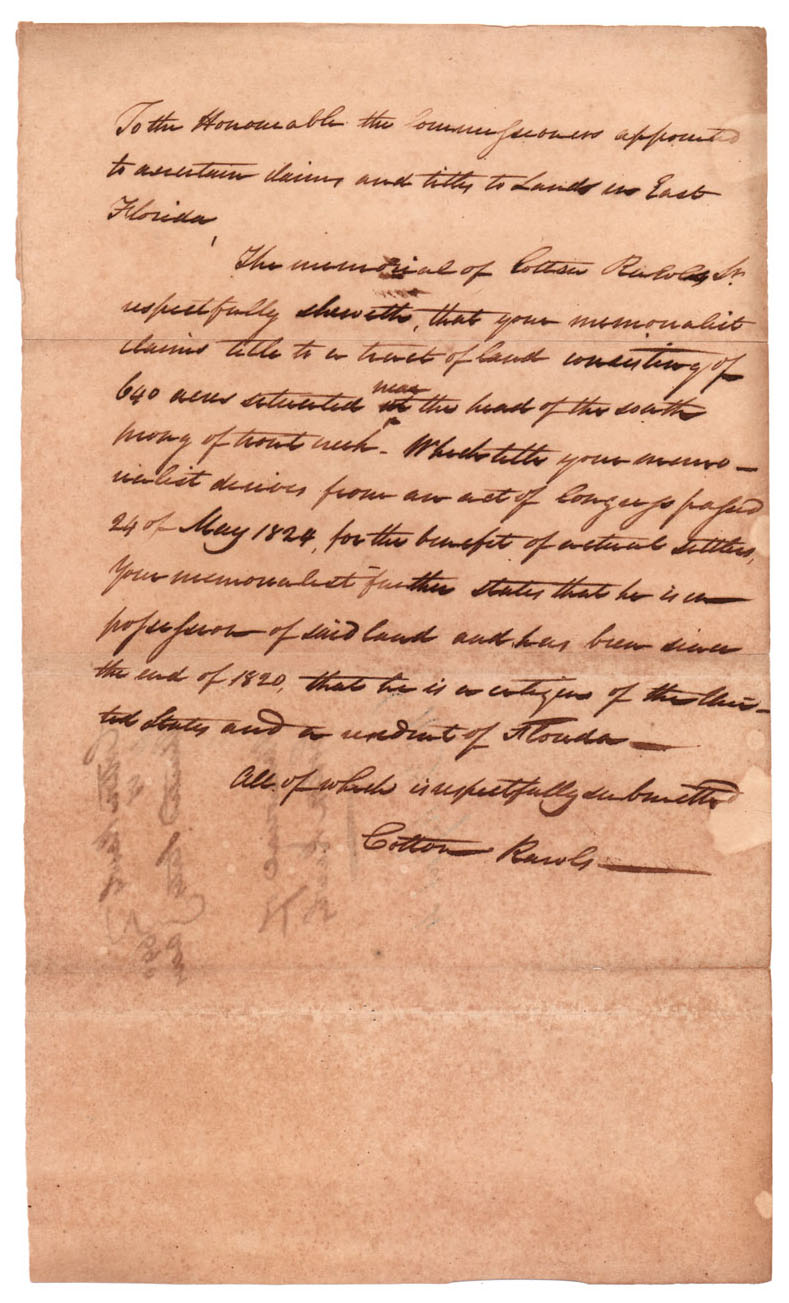 To the Honourable the Commissioners appointed
to ascertain claims and titles to Lands in East
Florida,
The memorial of Cotton Rawls Sr.
respectfully sheweth, that your memorialist
claims title to a tract of land consisting of
640 acres situated near the head of the south
prong of trout creek - Which title your memo-
rialist derives from an act of Congress passed
24 of May 1824, for the benefit of actual settlers,
Your memorialist further states that he is in
possession of said land and has been since
the end of 1820, that he is a citizen of the Uni-
ted States and a resident of Florida
All of which is respectfully submitted
Cotton Rawls